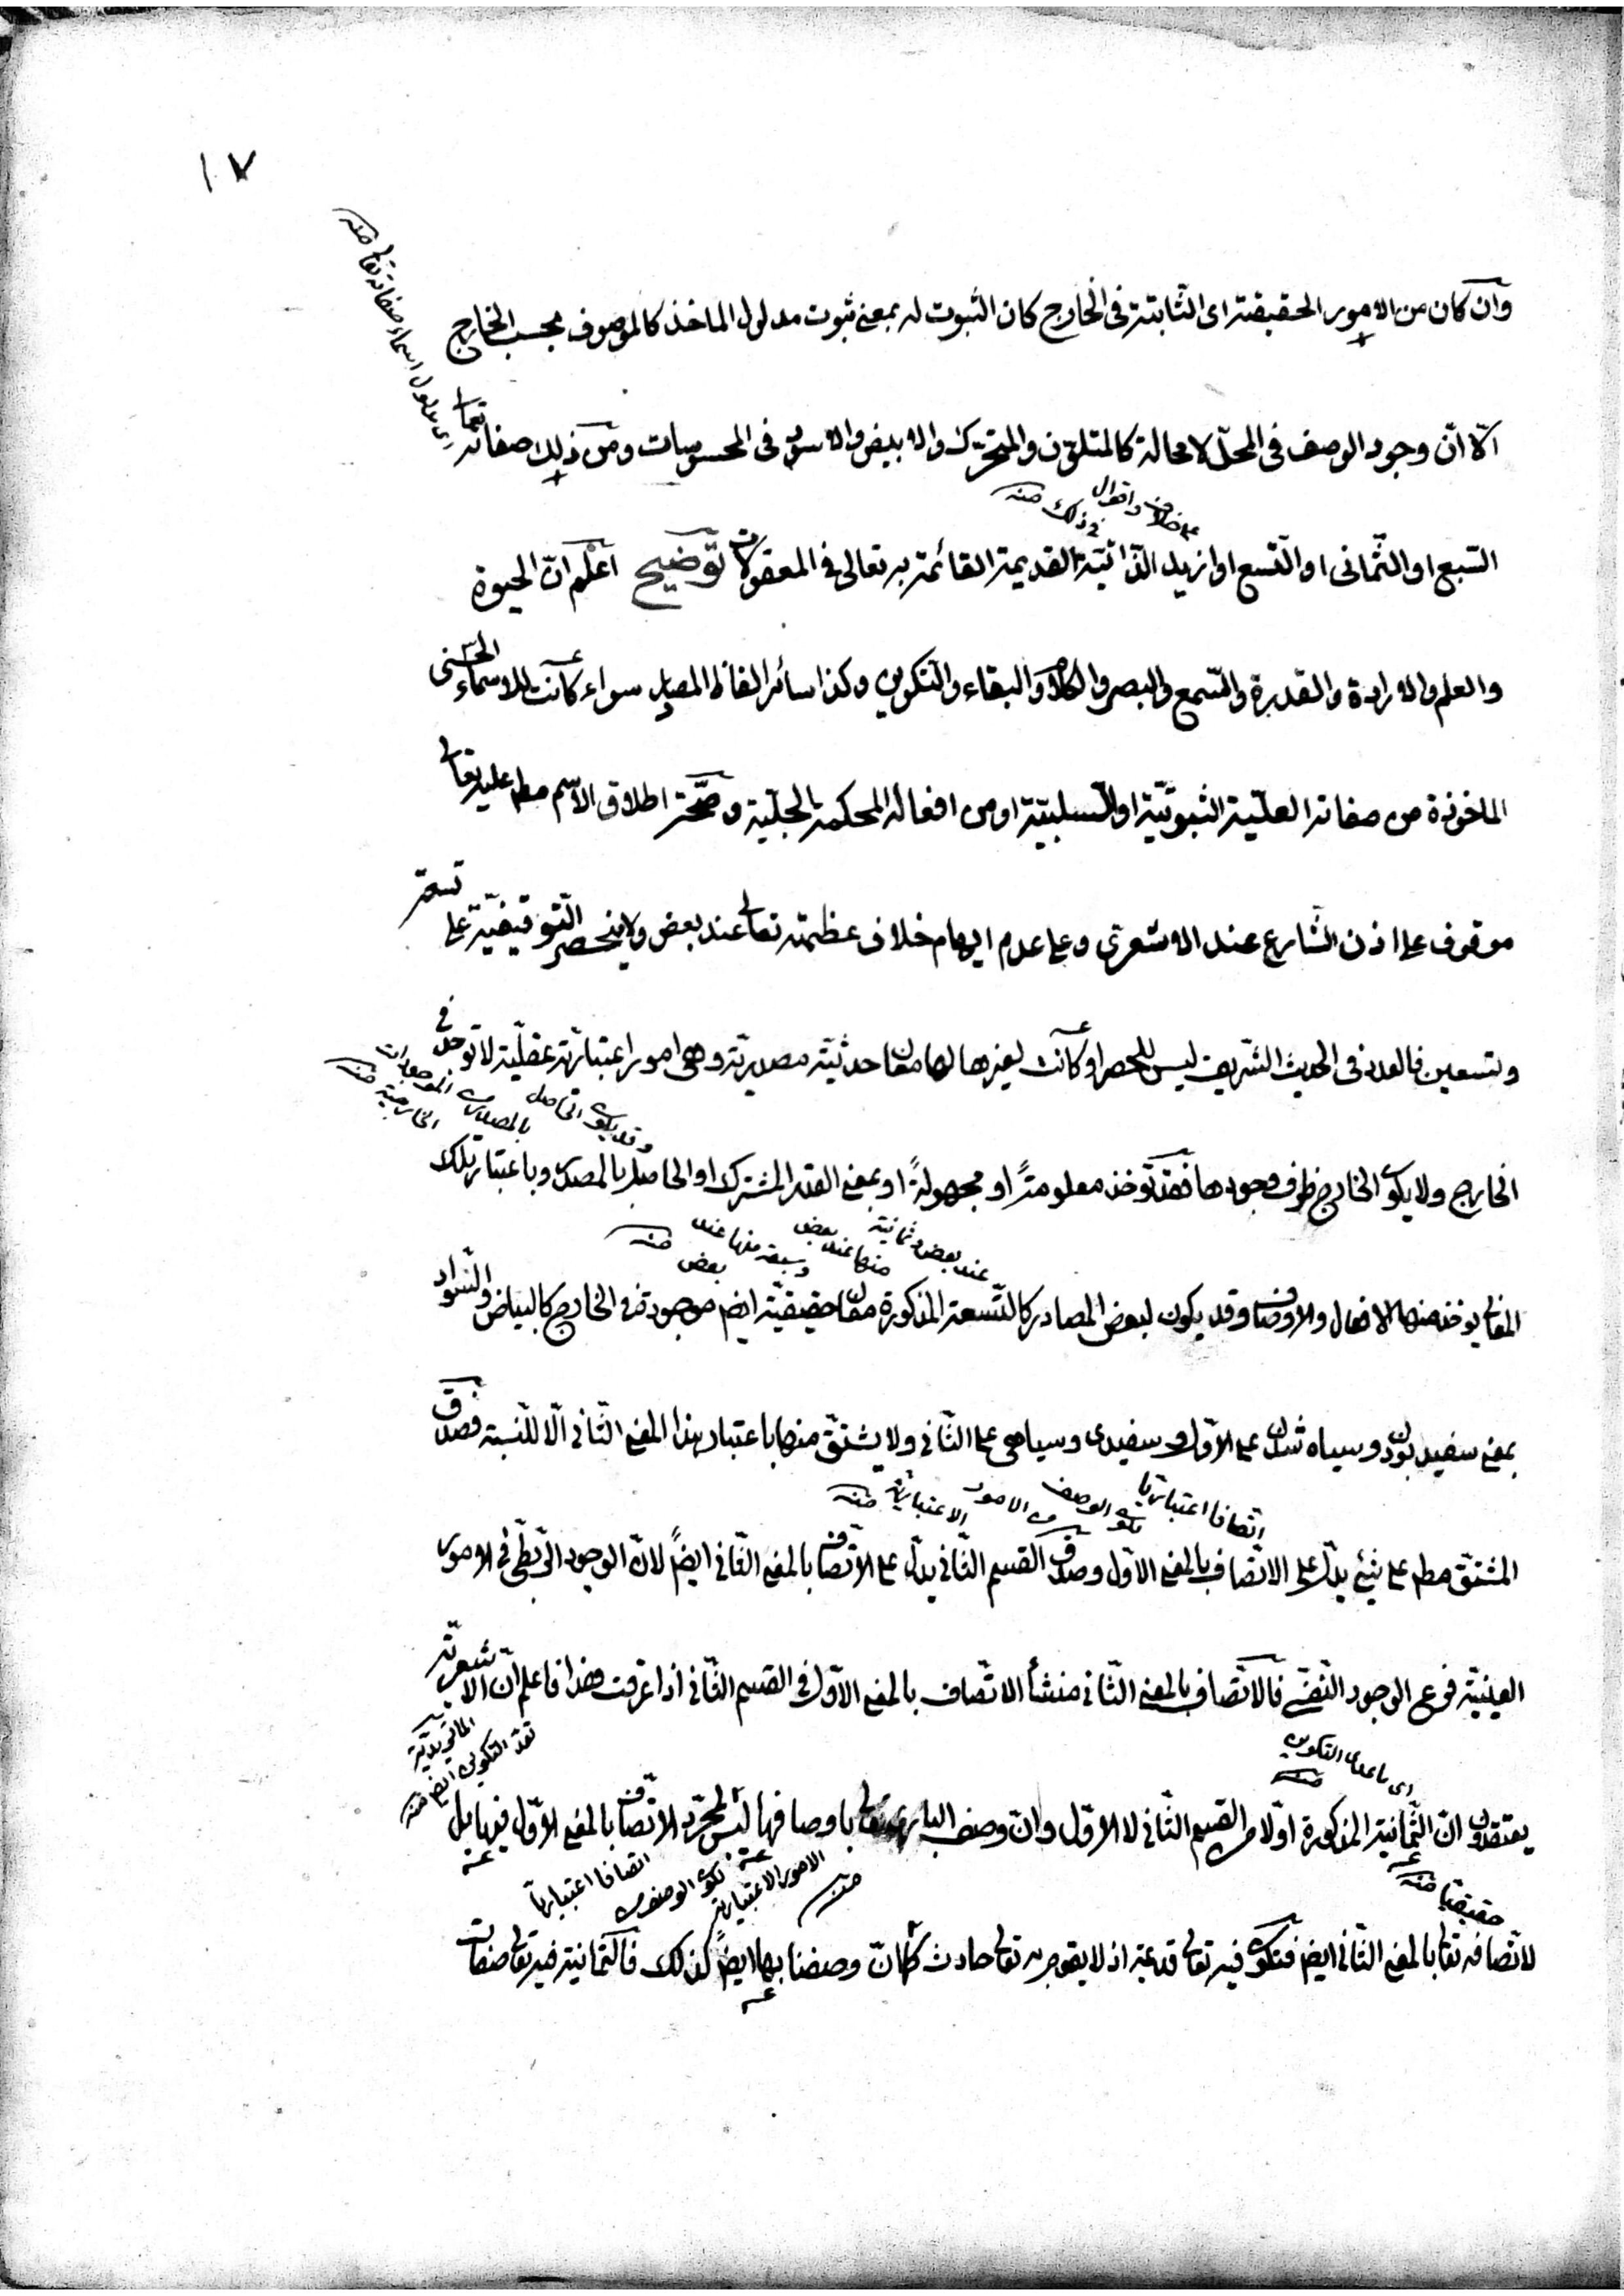 ١٧
وان كان من الامور الحقيقية اى الثابتة فى الخارج كان الثبوت له بمعنى ثبوت مدلول الماخذ كالموصوف بحسب الخارج
اى مدلول اسماء صفاته تعا منه
الا انّ وجود الوصف فى المحلّ لا محالة كالمتلوّن والمتحرّك والابيض والاسود فى المحسوسات ومن ذلك صفاته تعا
على خلاف واقوال فى ذلك منه
السّبع او الثّمانى او التّسع او ازيد الذّاتيّة القديمة القائمة به تعالى فى المعقولات توضيح اعلم انّ الحيوة
والعلم والارادة والقدرة والسّمع والبصر والكلام والبقاء والتكوين وكذا سائر الفاظ المصادر سواء كانت للاسماء الحسنى
الماخوذة من صفاته العليّة الثبوتيّة او السّلبيّة او من افعاله المحكمة الجليّة وصحّة اطلاق الاسم مط عليه تعالى
موقوف على اذن الشّارع عند الاشعرى وعلى عدم ايهام خلاف عظمته تعالى عند بعض ولا ينحصر التّوقيفيّة على تسعة
وتسعين فالعدد فى الحديث الشّريف ليس للحصر او كانت لغيرها لها معان حدثيّة مصدريّة وهى امور اعتباريّة عقليّة لا توجد فى
وقد يكون الحاصل بالمصدر من الموجودات الخارجية منه
الخارج ولا يكون الخارج ظرف وجودها فقد تؤخذ معلومةً او مجهولةً او بمعنى القدر المشترك او الحاصل بالمصدر وباعتبار تلك
عند بعض وثمانية منها عند بعض وسبعة منها عند بعض منه
المعانى يؤخذ منها الافعال والاوصاف وقد يكون لبعض المصادر كالتّسعة المذكورة معان حقيقيّة ايضم موجودة فى الخارج كالبياض والسّواد
بمعنى سفيد بودن وسياه شدن على الاوّل وسفيدى وسياهى على الثّانى ولا يشتقّ منها باعتبار هذا المعنى الثّانى الّا للنّسبة فصدق
اتّصافا اعتباريا لكون الوصف من الامور الاعتباريّة منه
المشتقّ مط على شئ يدلّ على الاتّصاف بالمعنى الاوّل وصدق القسم الثّانى يدلّ على الاتّصاف بالمعنى الثّانى ايضاً لانّ الوجود الرّبطى فى الامور
العينيّة فرع الوجود النّفسى فالاتّصاف بالمعنى الثّانى منشأ الاتّصاف بالمعنى الاوّل فى القسم الثّانى اذا عرفت هذا فاعلم انّ الاشعريّة
اى ما عدا التكوين منه
الماتريديّة تعدّ التكوين ايضم منه
يعتقدون انّ الثّمانية المذكورة اوّلا من القسم الثّانى لا الاوّل وانّ وصف البارى تعالى باوصافها ليس لمجرّد الاتّصاف بالمعنى الاوّل فيها بل
حقيقيّا منه
اتصافا اعتباريّا لكون الوصف من الامور الاعتباريّة منه
لاتّصافه تعا بالمعنى الثّانى ايضم فتكون فيه تعالى قديمة اذ لا يقوم به تعالى حادث كما انّ وصفنا بها ايضاً كذلك فالثّمانية فيه تعالى صفات